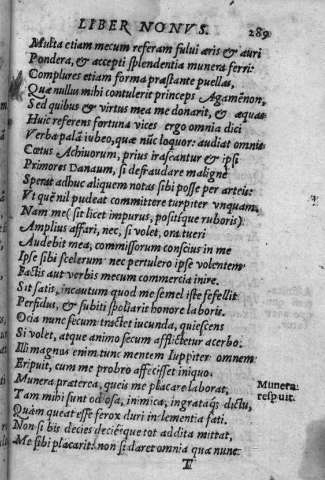 LIBER NONVS. 289
Multa etiam mecum referam fului æris & auri
Pondera, & accepti splendentia munera ferri:
Complures etiam forma præstante puellas,
Quæ nullus mihi contulerit princeps Agamẽnon,
Sed quibus & virtus mea me donarit, & æquas
Huic referent fortuna vices ergo omnia dici
Verba palã iubeo, quæ nũc loquor: audiat omnis
Cœtus Achiuorum, prius irascantur & ipsi
Primores Danaum, si defraudare maligne
Sperat adhuc aliquem notas sibi posse per arteis:
Vt quẽ nil pudeat committere turpiter vnquam,
Nam me (sit licet impurus, positíque ruboris)
Amplius affari, nec, si volet, ora tueri
Audebit mea, commissorum conscius in me
Ipse sibi scelerum nec pertulero ipse volentem
Factis aut verbis mecum commercia inire.
Sit satis, incautum quod me semel iste fefellit
Perfidus, & subiti spoliarit honore laboris.
Ocia nunc secum tractet iucunda, quiescens
Si volet, atque animo secum afflictetur acerbo:
Illi magnus enim tunc mentem Iuppiter omnem
Eripuit, cum me probro affecisset iniquo.
Munera præterea, queis me placare laborat,
Munera
respuit.
Tam mihi sunt odiosa, inimica, ingratáq; dictu,
Quàm queat esse ferox duri inclementia fati.
Non si bis decies deciésque tot addita mittat,
Me sibi placarit: non si daret omnia quæ nunc
T